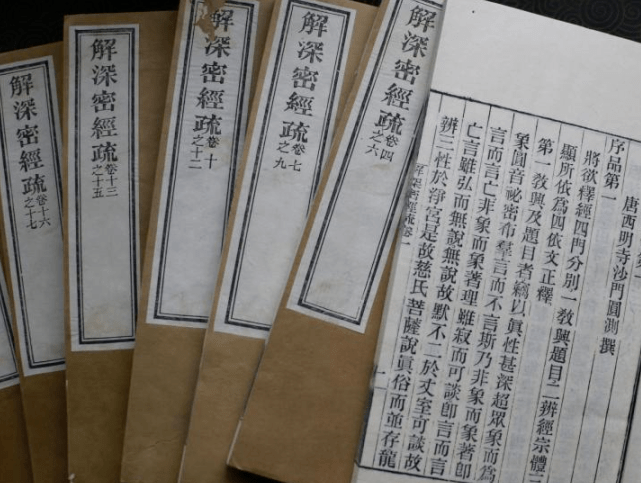 唐西明寺沙門圓測撰
序品第一
將欲釋經四門分別一教興題目二辨經宗體三
顯所依為四依文正釋
第一教興及題目者竊以眞性甚深超眾象而為
象圓音祕密布羣言而不言斯乃非象而象著即
言而言亡非象而象著理雖寂而可談卽言而言
亡言雖弘而無說無說故默不二於丈室可談故
辨三性於淨宮是故慈氏菩薩說眞俗而並存龍
解深密經疏卷一
一
解深密經疏卷四之六
解深密經疏卷七之九
解深密經疏卷十之十二
解深密經疏卷十三之十五
解深密經疏卷十六之十七